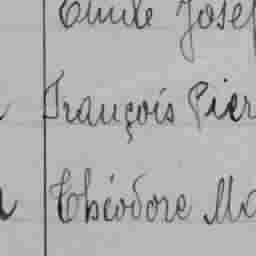 Emile Josep
François Pier
Théodore Ma